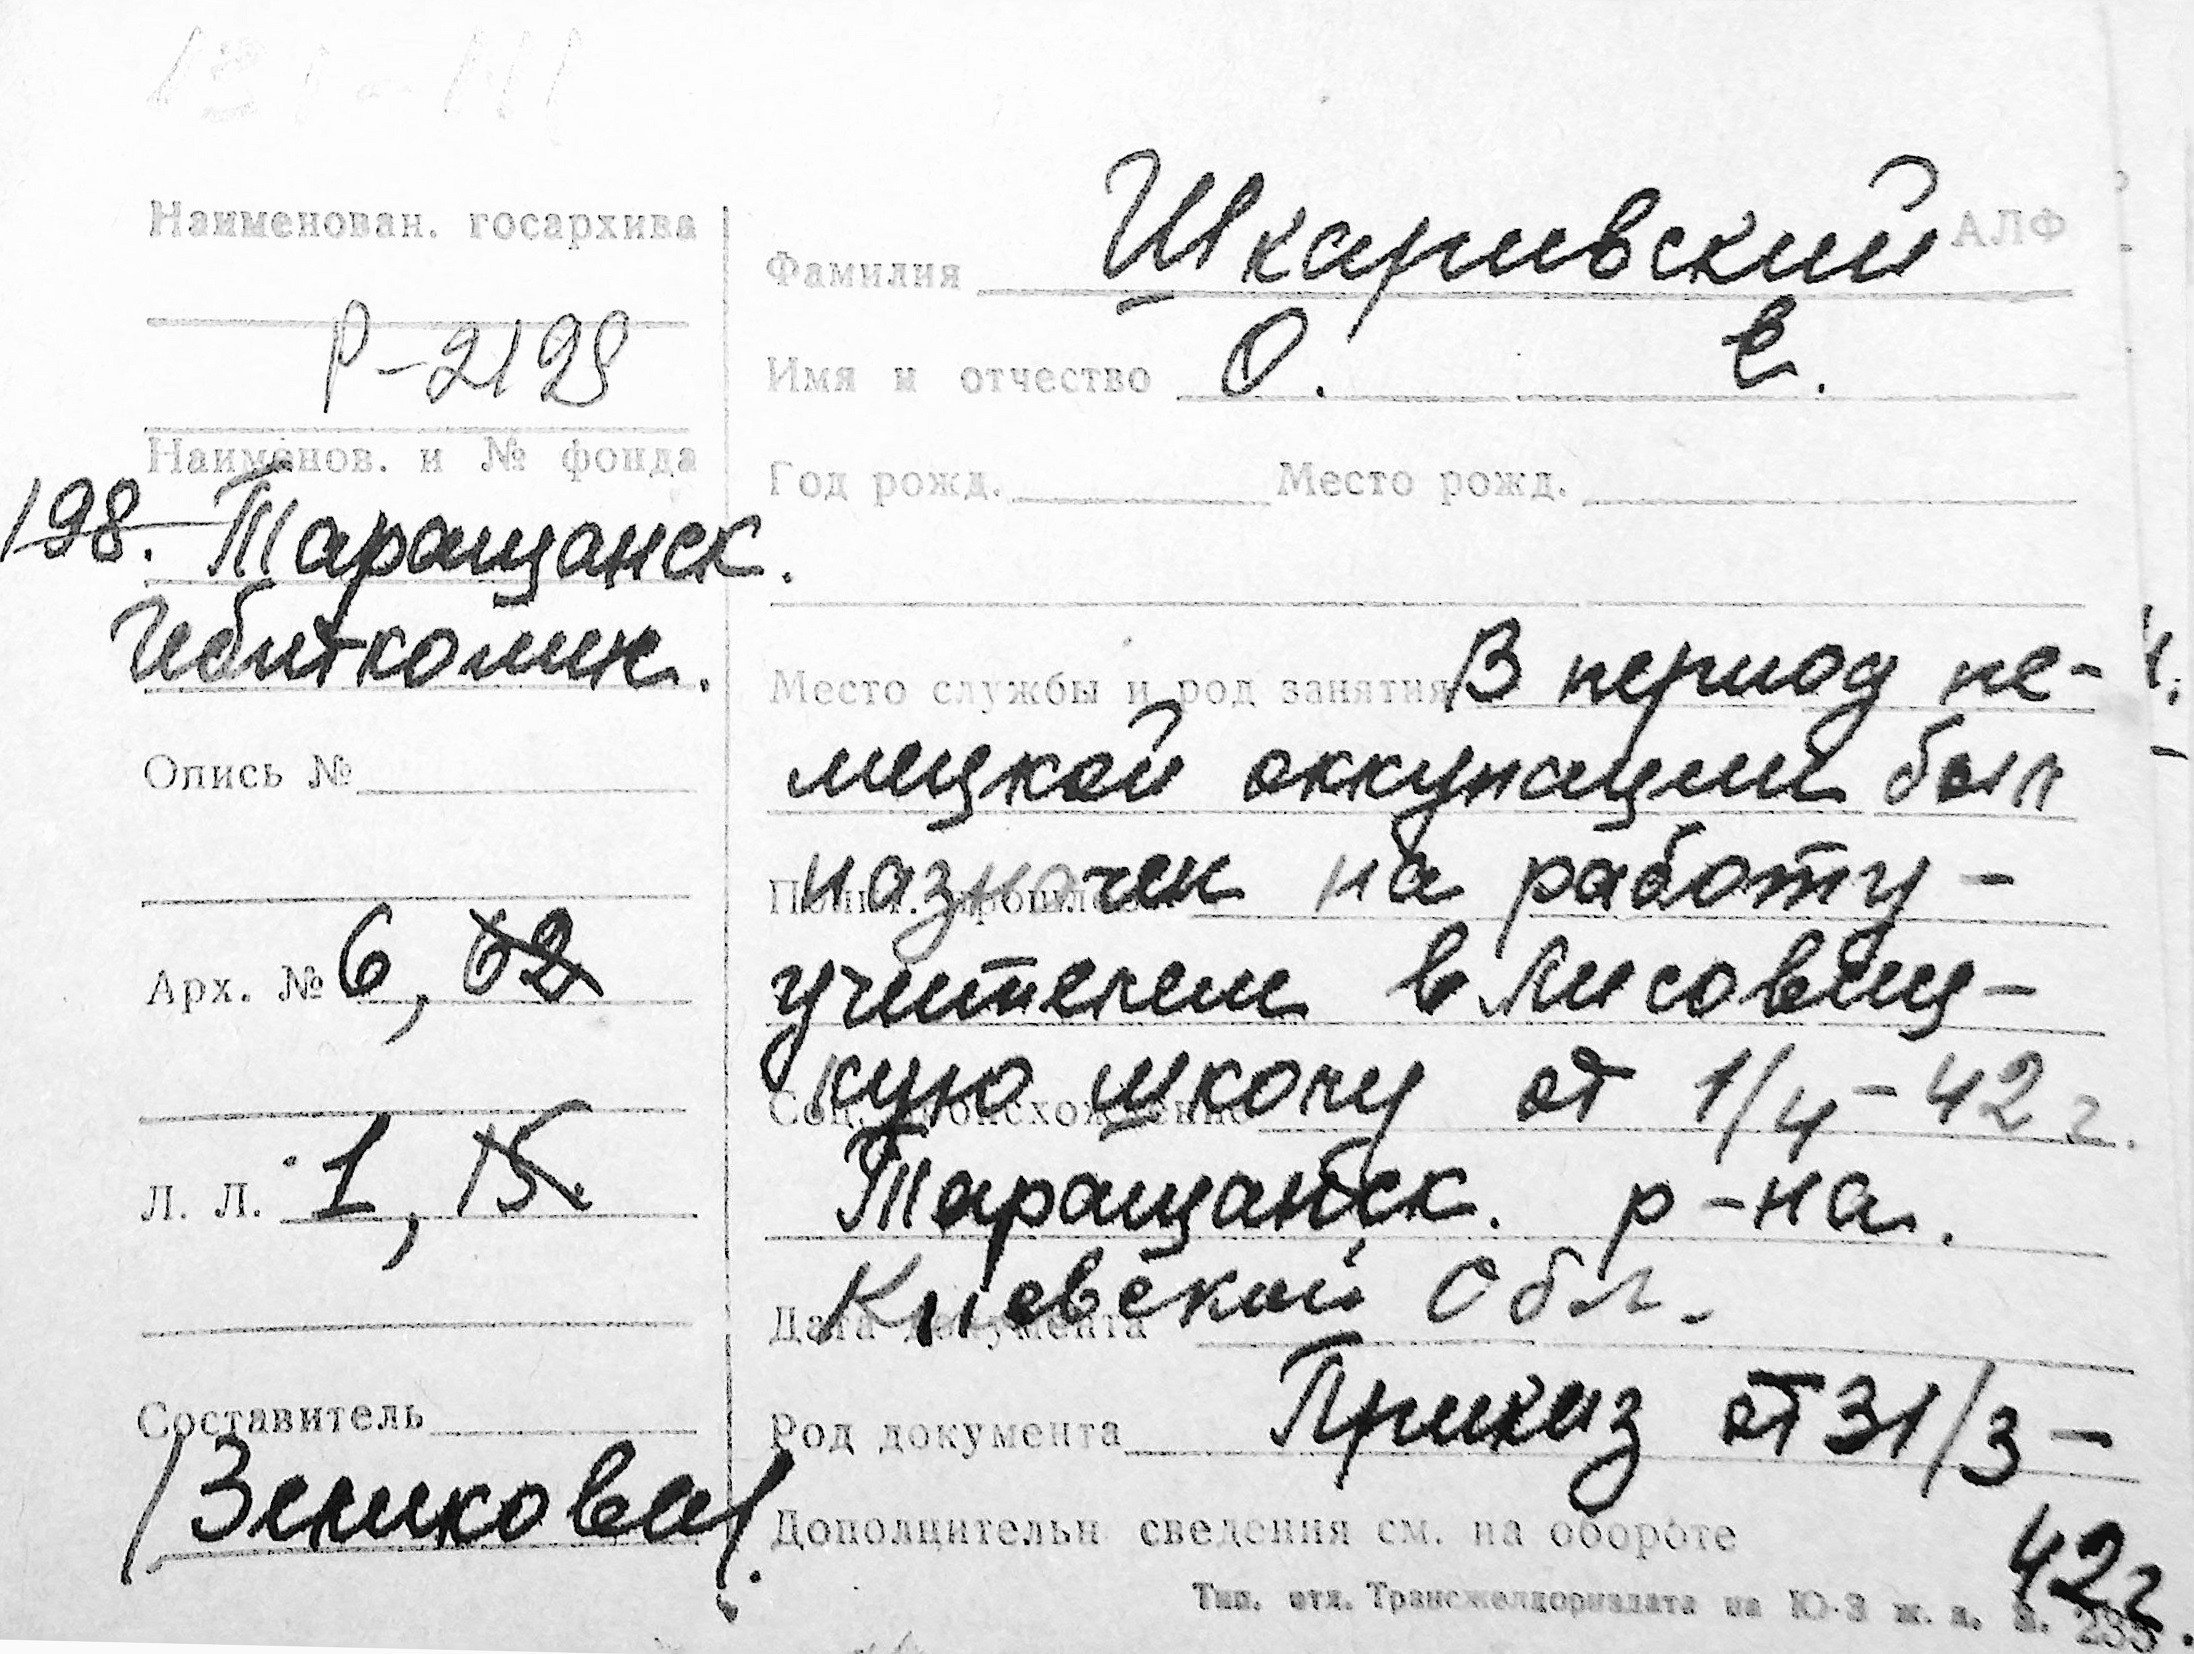 Наименован. госархива
Р-2198
Наименов. и № фонда
198. Таращанск.
Гебиткомис.
Опись №
Арх. № 6, 62
Л. Л. 1, 15.
Составитель
/Зенкова/.
АЛФ
Фамилия Шкаривский
Имя и отчество О. Е.
Год рожд. Место рожд.
Место службы и род занятия В период не-
мецкой оккупации был
назначен на работу -
учителем в Лисовец-
кую школу от 1/4-42 г.
Соц. происхождение
Таращанск. р-на.
Киевской Обл.
Дата документа
Род документа Приказ от 31/3-
42г.
Дополнительн сведения см. на обороте
Тип. отл. Трансжелдориздата на Ю-З ж. д. З. 235